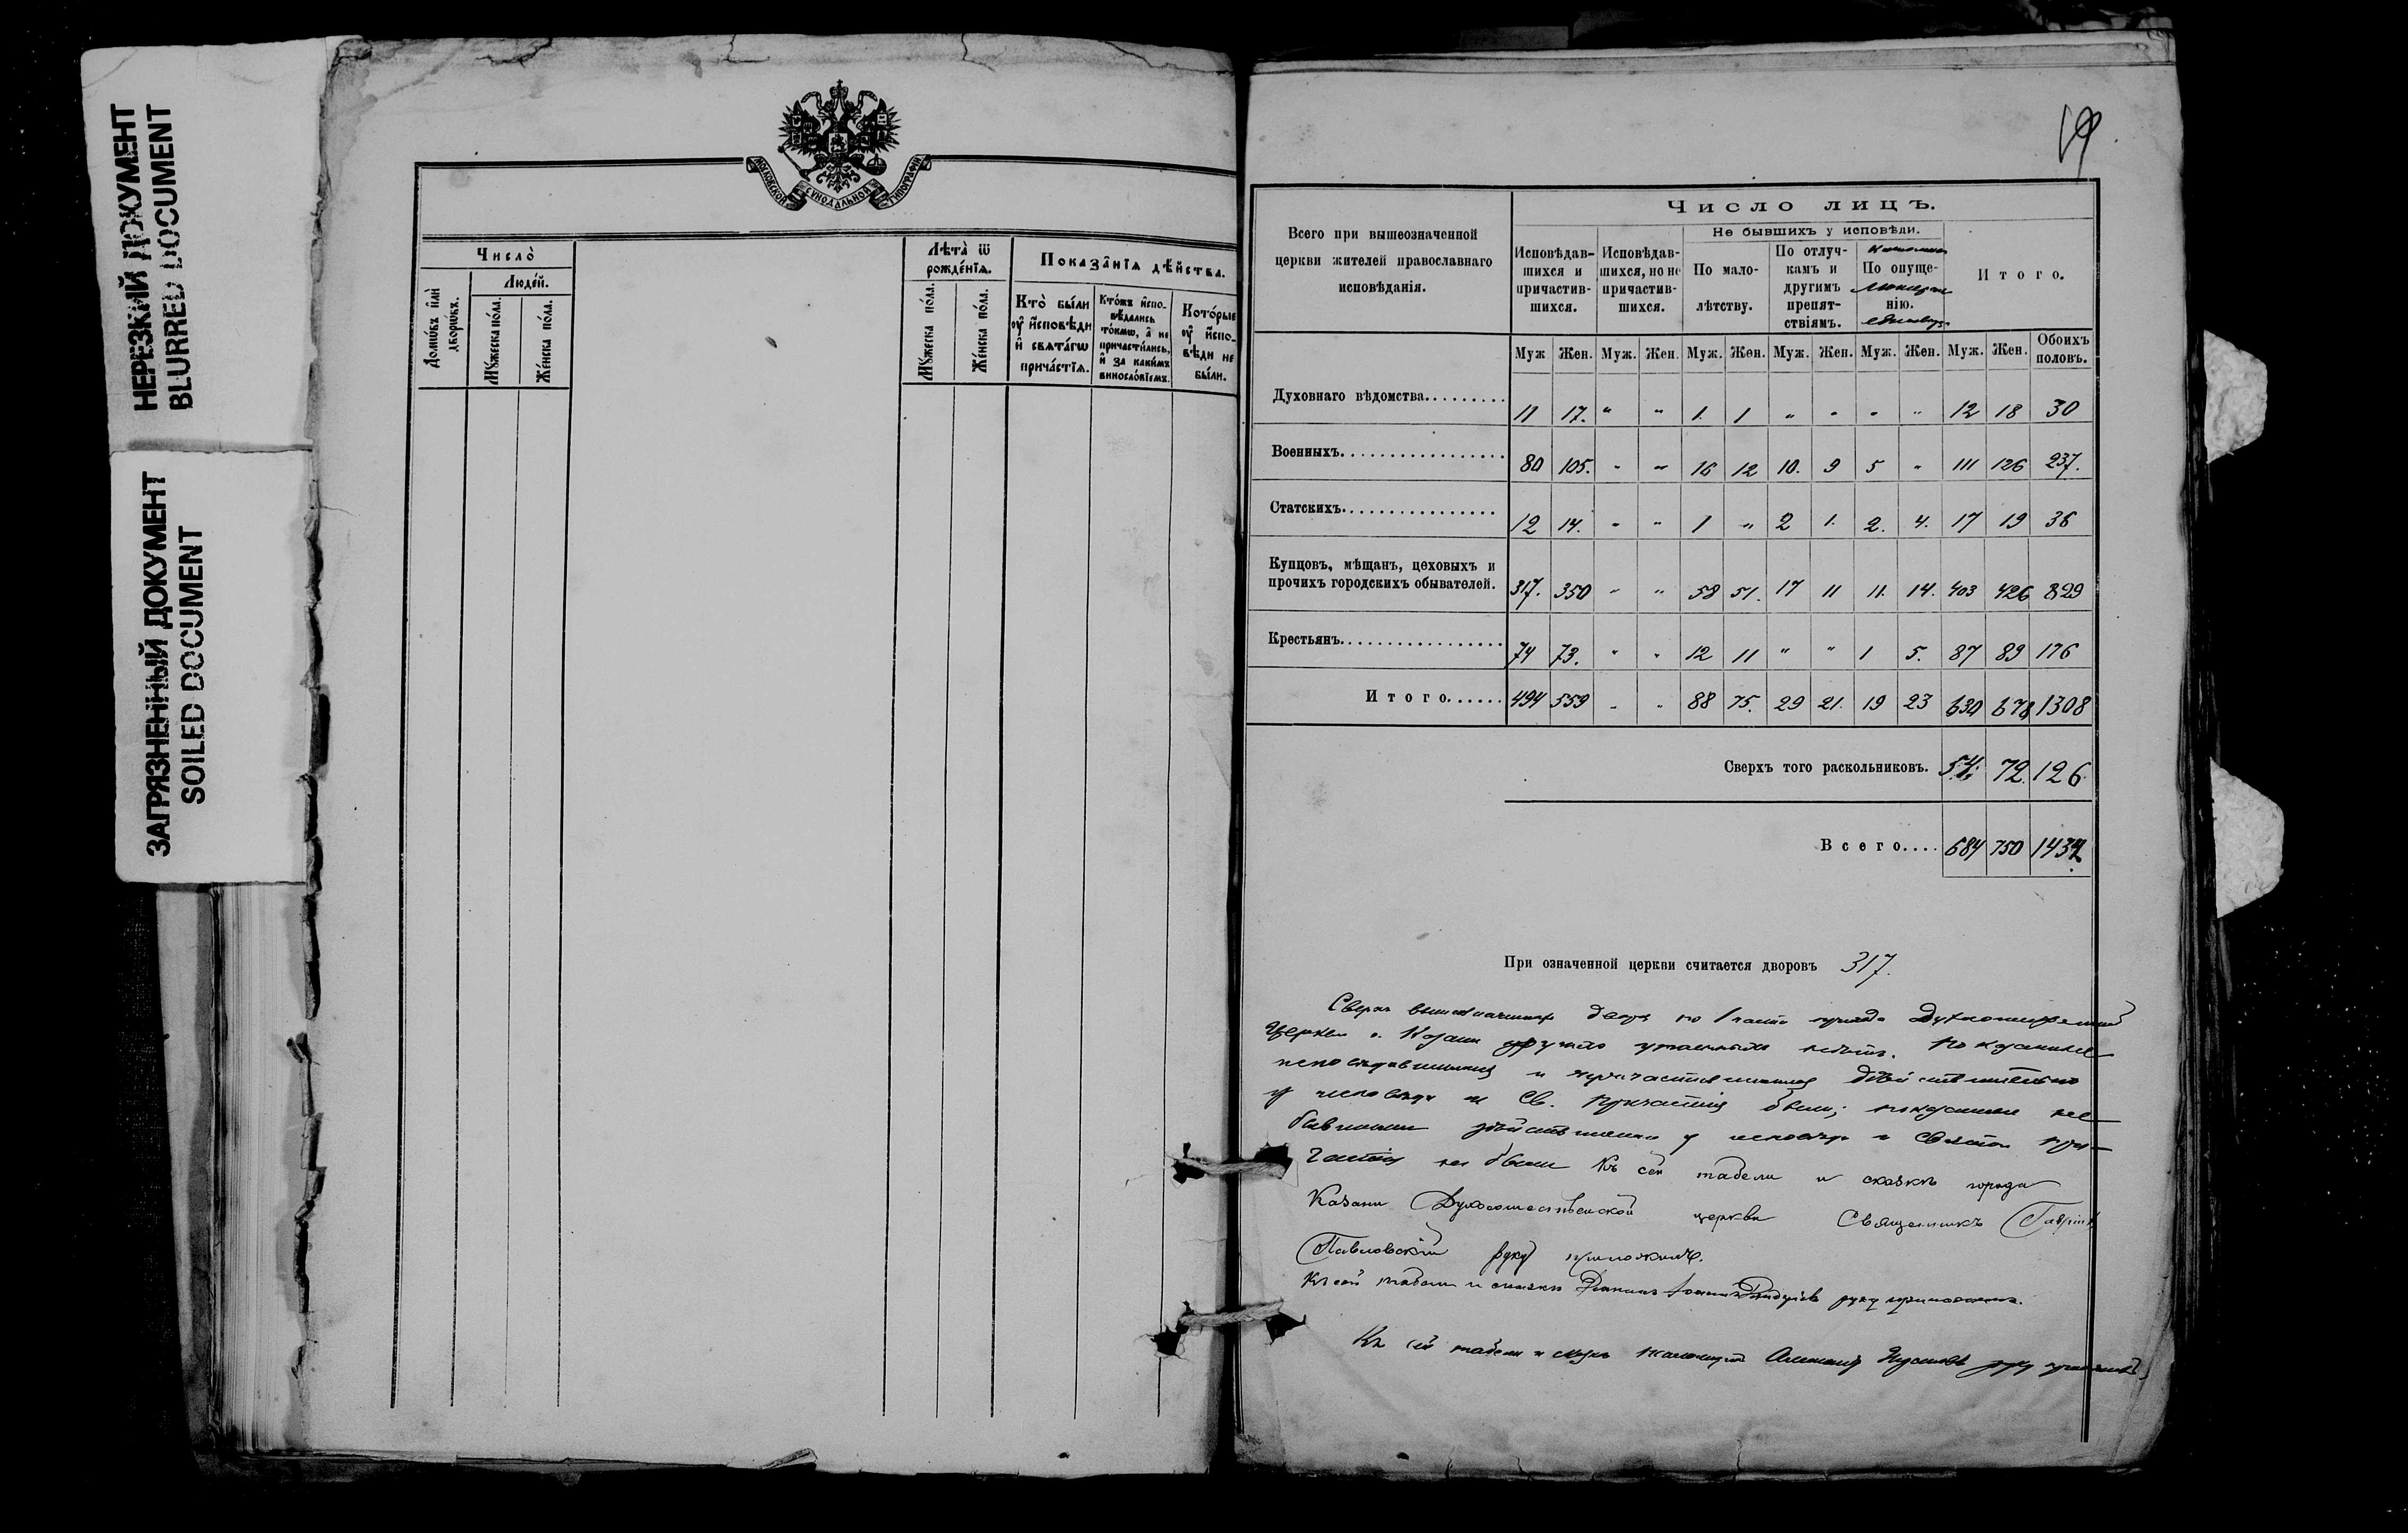 НЕРЕЗКИЙ ДОКУМЕНТ
BLURRED DOCUMENT
ЗАГРЯЗНЕННЫЙ ДОКУМЕНТ
SOILED DOCUMENT
МОСКОВСКОЙ СѴНОДАЛЬНОЙ ТИПОГРАФІИ
Число̀
Домѡвъ и҆лѝ дворѡвъ.
Люде́й.
Мꙋ́жеска по́ла.
Же́нска по́ла.
Лѣта̀ ѿ рожде́нїѧ.
Мꙋ́жеска по́ла.
Же́нска по́ла.
Показа̑нїѧ дѣ́йства.
Кто̀ бы́ли ᲂу҆ и҆́сповѣди и҆ свѧта́гѡ прича́стїѧ.
Кто́жъ и҆сповѣ́дались то́кмѡ, а҆ не причасти́лись, и҆ за каки́мъ винослоо́вїемъ.
Кото́рые ᲂу҆ и҆́сповѣди не бы́ли.
19
Всего при вышеозначенной церкви жителей православнаго исповѣданія.
Число лицъ.
Исповѣдавшихся и причастившихся.
Исповѣдавшихся, но не причастившихся.
Не бывшихъ у исповѣди.
По малолѣтству.
По отлучкамъ и другимъ препятствіямъ.
По опущенію.
Итого.
Муж Жен. Муж. Жен. Муж. Жен. Муж. Жен. Муж. Жен. Муж. Жен. Обоихъ половъ.
Духовнаго вѣдомства......... 11 17. " " 1. 1 " " " " 12 18 30
Военныхъ................. 80 105. " " 16 12 10. 9 5 " 111 126 237.
Статскихъ................ 12 14. " " 1 " 2 1. 2. 4. 17 19 36
Купцовъ, мѣщанъ, цеховыхъ и прочихъ городскихъ обывателей. 317. 350 " " 58 51. 17 11 11. 14. 403 426 829
Крестьянъ................. 74 73. " " 12 11 " " 1 5. 87 89 176
Итого...... 494 559 " " 88 75. 29 21. 19 23 630 678 1308
Сверхъ того раскольниковъ. 54. 72. 126
Всего.... 684 750 1434
При означенной церкви считается дворовъ 317.
Сверхъ
церкви г. Казани
у исповѣди и Св. Причастія были; показанные не
бывшими дѣйствительно у исповѣди и Святаго При-
частія не были Къ сей табели и сказкѣ города
Казани Духосошественской церкви Священникъ Гавріилъ
Павловскій руку приложилъ.
Къ сей табели и сказкѣ руку приложилъ.
Къ сей табели и сказкѣ руку приложилъ